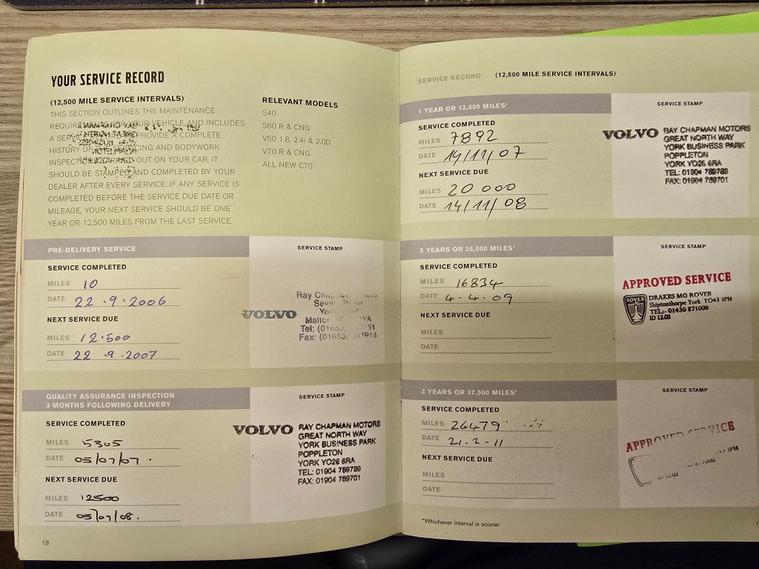 YOUR SERVICE RECORD
(12,500 MILE SERVICE INTERVALS)
THIS SECTION OUTLINES THE MAINTENANCE
VEHICLE AND INCLUDES
A COMPLETE
HISTORY OF AND BODYWORK
OUT ON YOUR CAR. IT
SHOULD BE STAMPED AND COMPLETED BY YOUR
DEALER AFTER EVERY SERVICE. IF ANY SERVICE IS
COMPLETED BEFORE THE SERVICE DUE DATE OR
MILEAGE, YOUR NEXT SERVICE SHOULD BE ONE
YEAR OR 12,500 MILES FROM THE LAST SERVICE.
RELEVANT MODELS
S40
S60 R & CNG
V50 1.8, 2.4i & 2.0D
V70 R & CNG
ALL NEW C70
PRE-DELIVERY SERVICE
SERVICE COMPLETED
MILES 10
DATE 22.9.2006
NEXT SERVICE DUE
MILES 12.500
DATE 22.9.2007
SERVICE STAMP
VOLVO
Ray
Tel:
Fax:
QUALITY ASSURANCE INSPECTION
3 MONTHS FOLLOWING DELIVERY
SERVICE COMPLETED
MILES 5305
DATE 05/07/07.
NEXT SERVICE DUE
MILES 12500
DATE 05/07/08.
SERVICE STAMP
VOLVO
RAY CHAPMAN MOTORS
GREAT NORTH WAY
YORK BUSINESS PARK
POPPLETON
YORK YO26 6RA
TEL: 01904 789789
FAX: 01904 789701
18
SERVICE RECORD (12,500 MILE SERVICE INTERVALS)
1 YEAR OR 12,500 MILES*
SERVICE COMPLETED
MILES 7892
DATE 14/11/07
NEXT SERVICE DUE
MILES 20 000
DATE 14/11/08
SERVICE STAMP
VOLVO
RAY CHAPMAN MOTORS
GREAT NORTH WAY
YORK BUSINESS PARK
POPPLETON
YORK YO26 6RA
TEL: 01904 789789
FAX: 01904 789701
2 YEARS OR 25,000 MILES*
SERVICE COMPLETED
MILES 16834
DATE 4-4-09
NEXT SERVICE DUE
MILES
DATE
SERVICE STAMP
APPROVED SERVICE
ROVER
DRAKES MG ROVER
Shiptonthorpe York YO43 3PH
TEL:- 01430 871009
3 YEARS OR 37,500 MILES*
SERVICE COMPLETED
MILES 26479
DATE 21-2-11
NEXT SERVICE DUE
MILES
DATE
SERVICE STAMP
APPROVED SERVICE
*Whichever interval is sooner